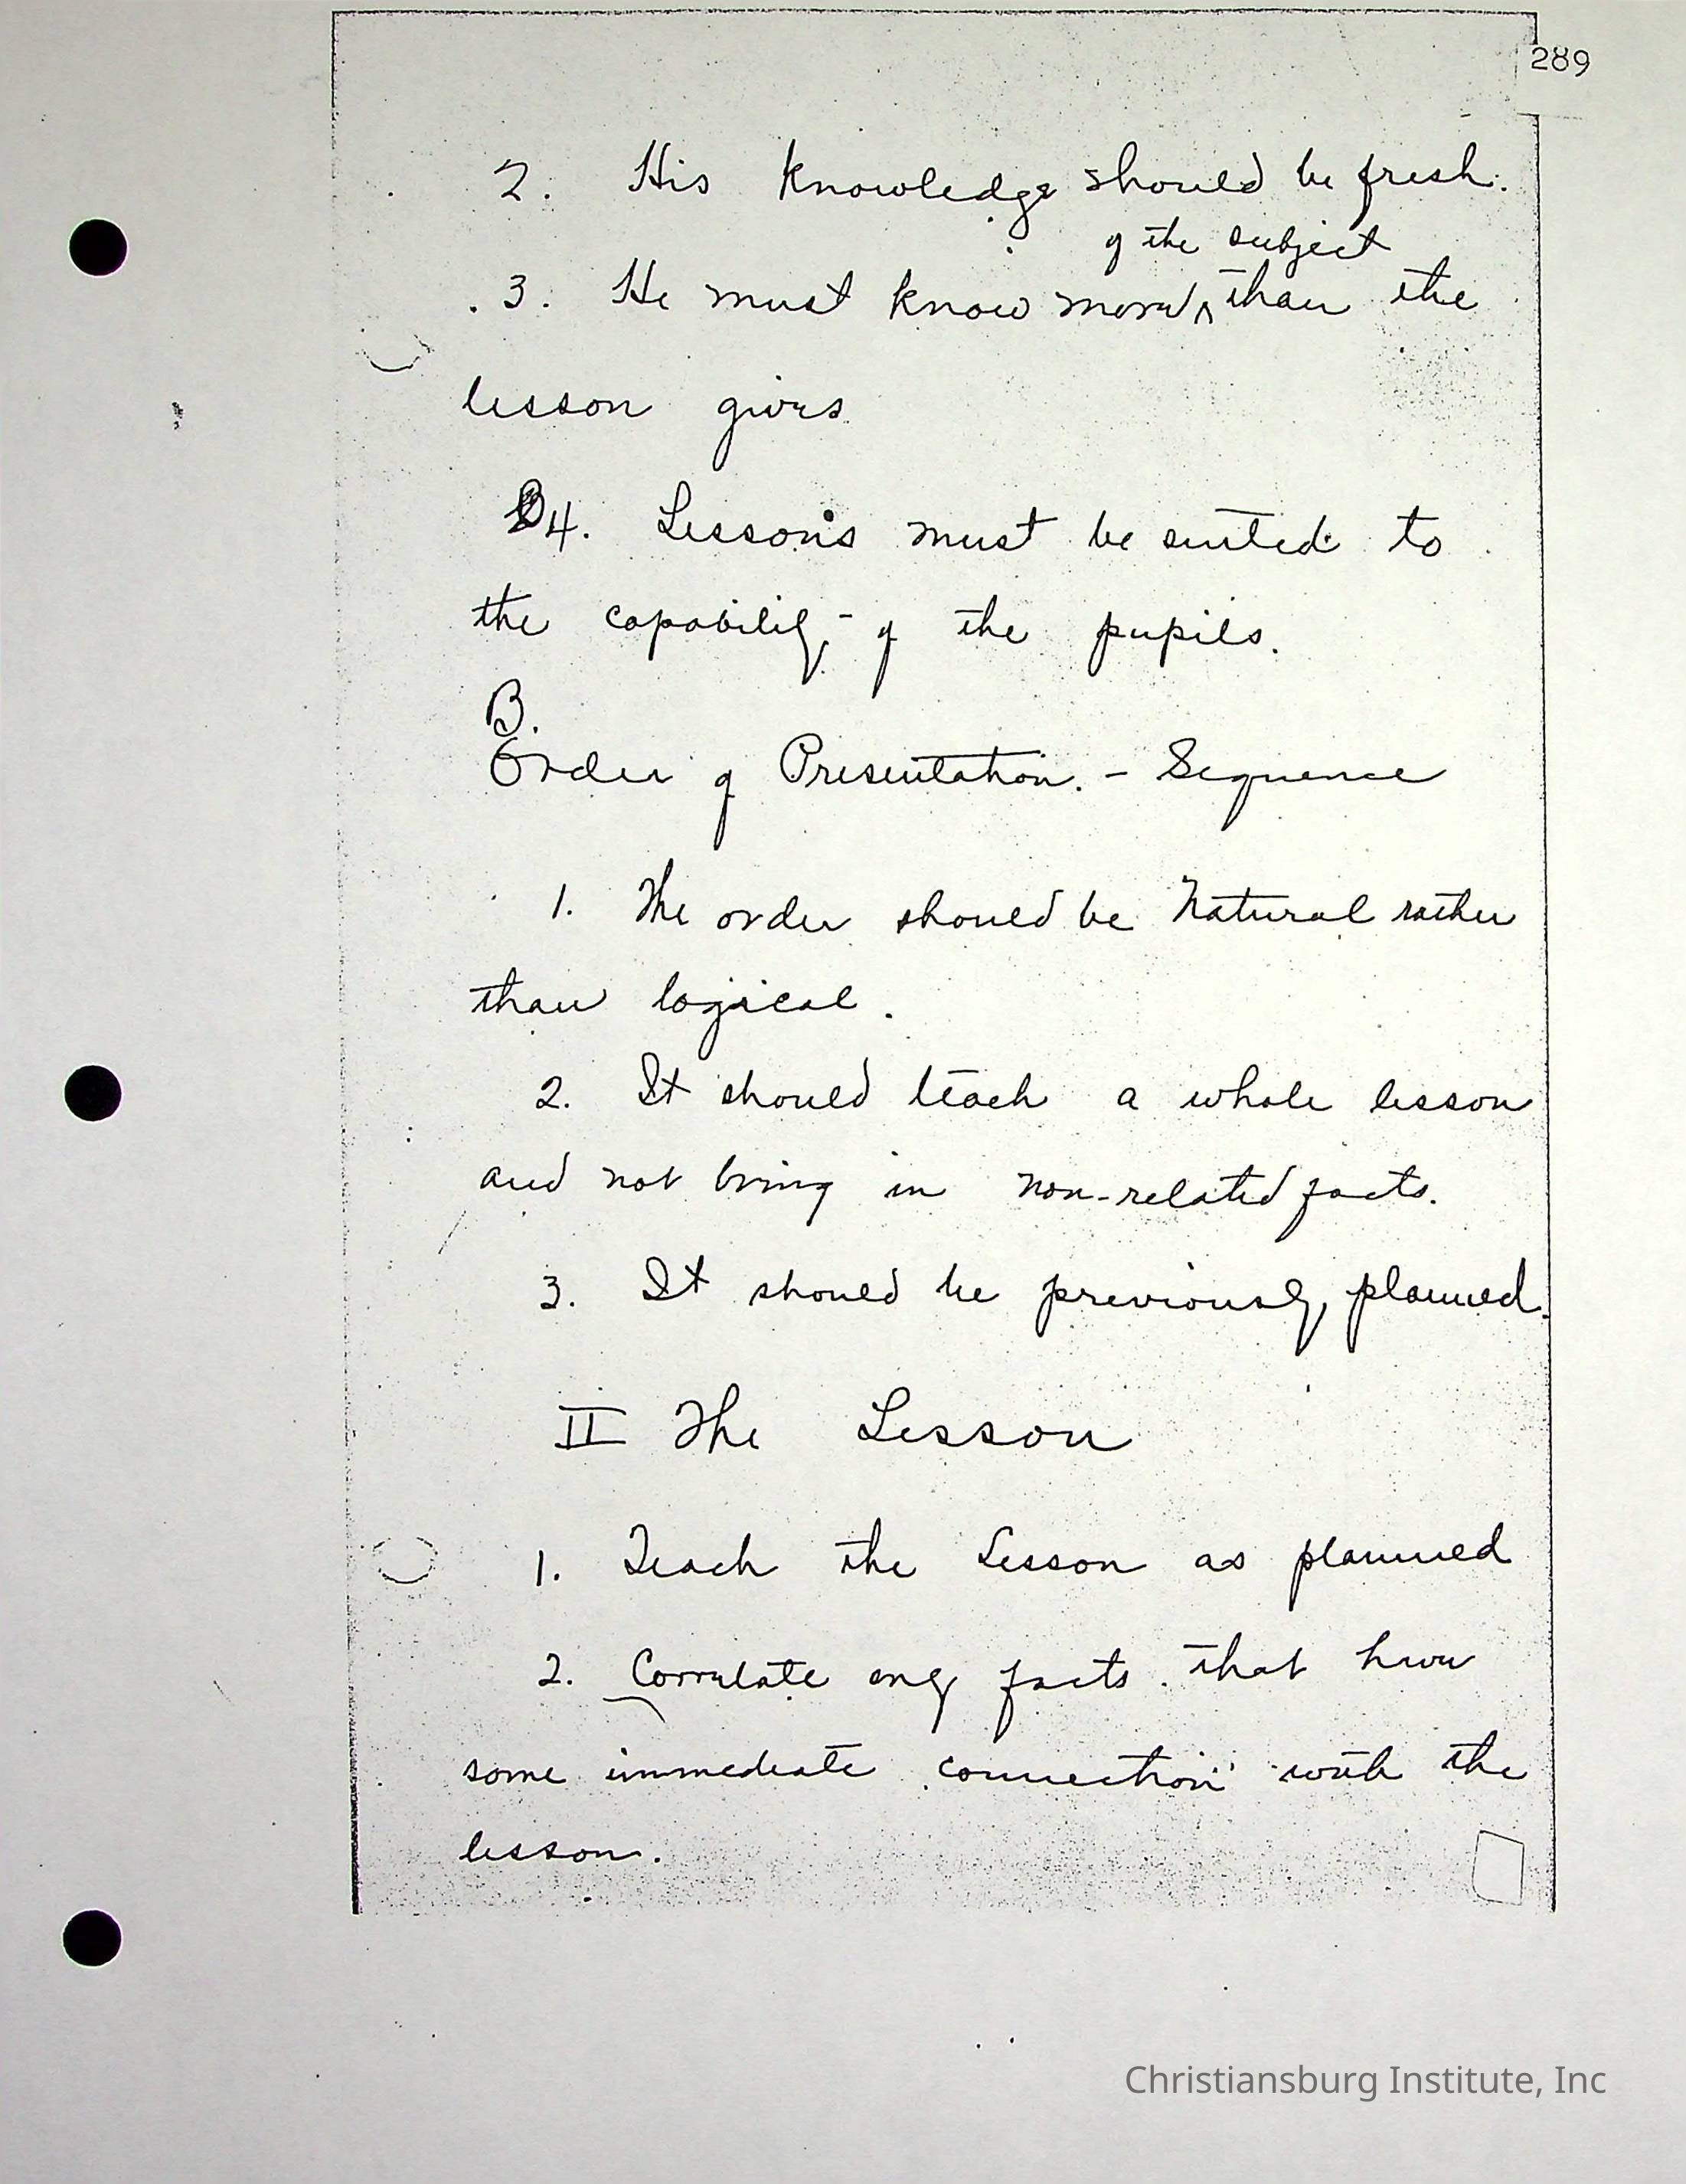 289
2. His knowledge should be fresh.
of the subject
3. He must know more ^ than the
lesson gives.
4. Lessons must be suited to
the capability of the pupils.
B.
Order of Presentation. - Sequence
1. The order should be Natural rather
than logical.
2. It should teach a whole lesson
and not bring in non-related facts.
3. It should be previously planned.
II The Lesson
1. Teach the Lesson as planned
2. Correlate only facts that have
some immediate connection with the
lesson.
Christiansburg Institute, Inc